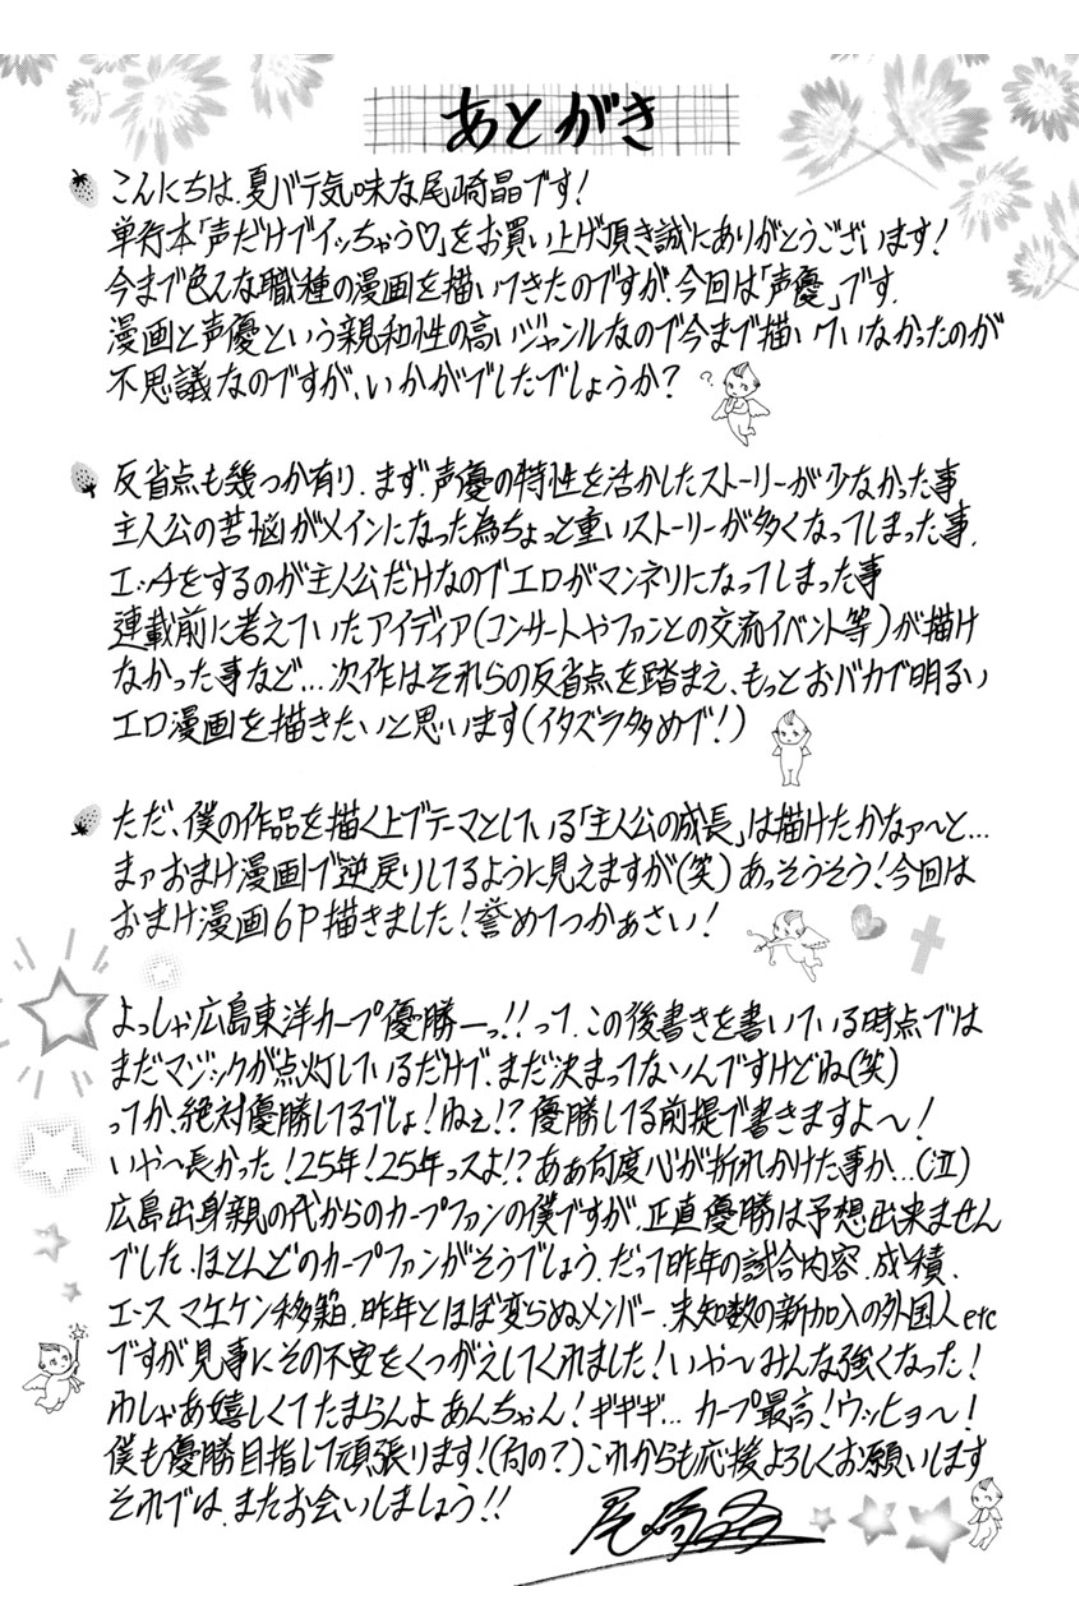 あとがき
こんにちは、夏バテ気味な尾崎晶です!
単行本「声だけでイッちゃう♡」をお買い上げ頂き誠にありがとうございます!
今まで色んな職種の漫画を描いてきたのですが、今回は「声優」です。
漫画と声優という親和性の高いジャンルなので今まで描いていなかったのが
不思議なのですが、いかがでしたでしょうか?
?
反省点も幾つか有り、まず、声優の特性を活かしたストーリーが少なかった事、
主人公の苦悩がメインになった為ちょっと重いストーリーが多くなってしまった事、
エッチをするのが主人公だけなのでエロがマンネリになってしまった事
連載前に考えていたアイディア(コンサートやファンとの交流イベント等)が描け
なかった事など…次作はそれらの反省点を踏まえ、もっとおバカで明るい
エロ漫画を描きたいと思います(イタズラ多めで!)
ただ、僕の作品を描く上でテーマとしている「主人公の成長」は描けたかなァ〜と…
まァおまけ漫画で逆戻りしてるように見えますが(笑)あっそうそう!今回は
おまけ漫画6P描きました!誉めてつかぁさい!
よっしゃ広島東洋カープ優勝ーっ!!って、この後書きを書いている時点では
まだマジックが点灯しているだけで、まだ決まってないんですけどね(笑)
ってか、絶対優勝してるでしょ!ねぇ!?優勝してる前提で書きますよ〜!
いや〜長かった!25年!25年っスよ!?あぁ何度心が折れかけた事か…(泣)
広島出身親の代からのカープファンの僕ですが、正直優勝は予想出来ません
でした、ほとんどのカープファンがそうでしょう、だって昨年の試合内容、成績、
エース マエケン移籍、昨年とほぼ変らぬメンバー、未知数の新加入の外国人etc
ですが見事にその不安をくつがえしてくれました!いや〜みんな強くなった!
わしゃあ嬉しくてたまらんよ あんちゃん!ギギギ…カープ最高!ウッヒョ〜!
僕も優勝目指して頑張ります!(何の?)これからも応援よろしくお願いします
それでは、またお会いしましょう!!
尾崎晶